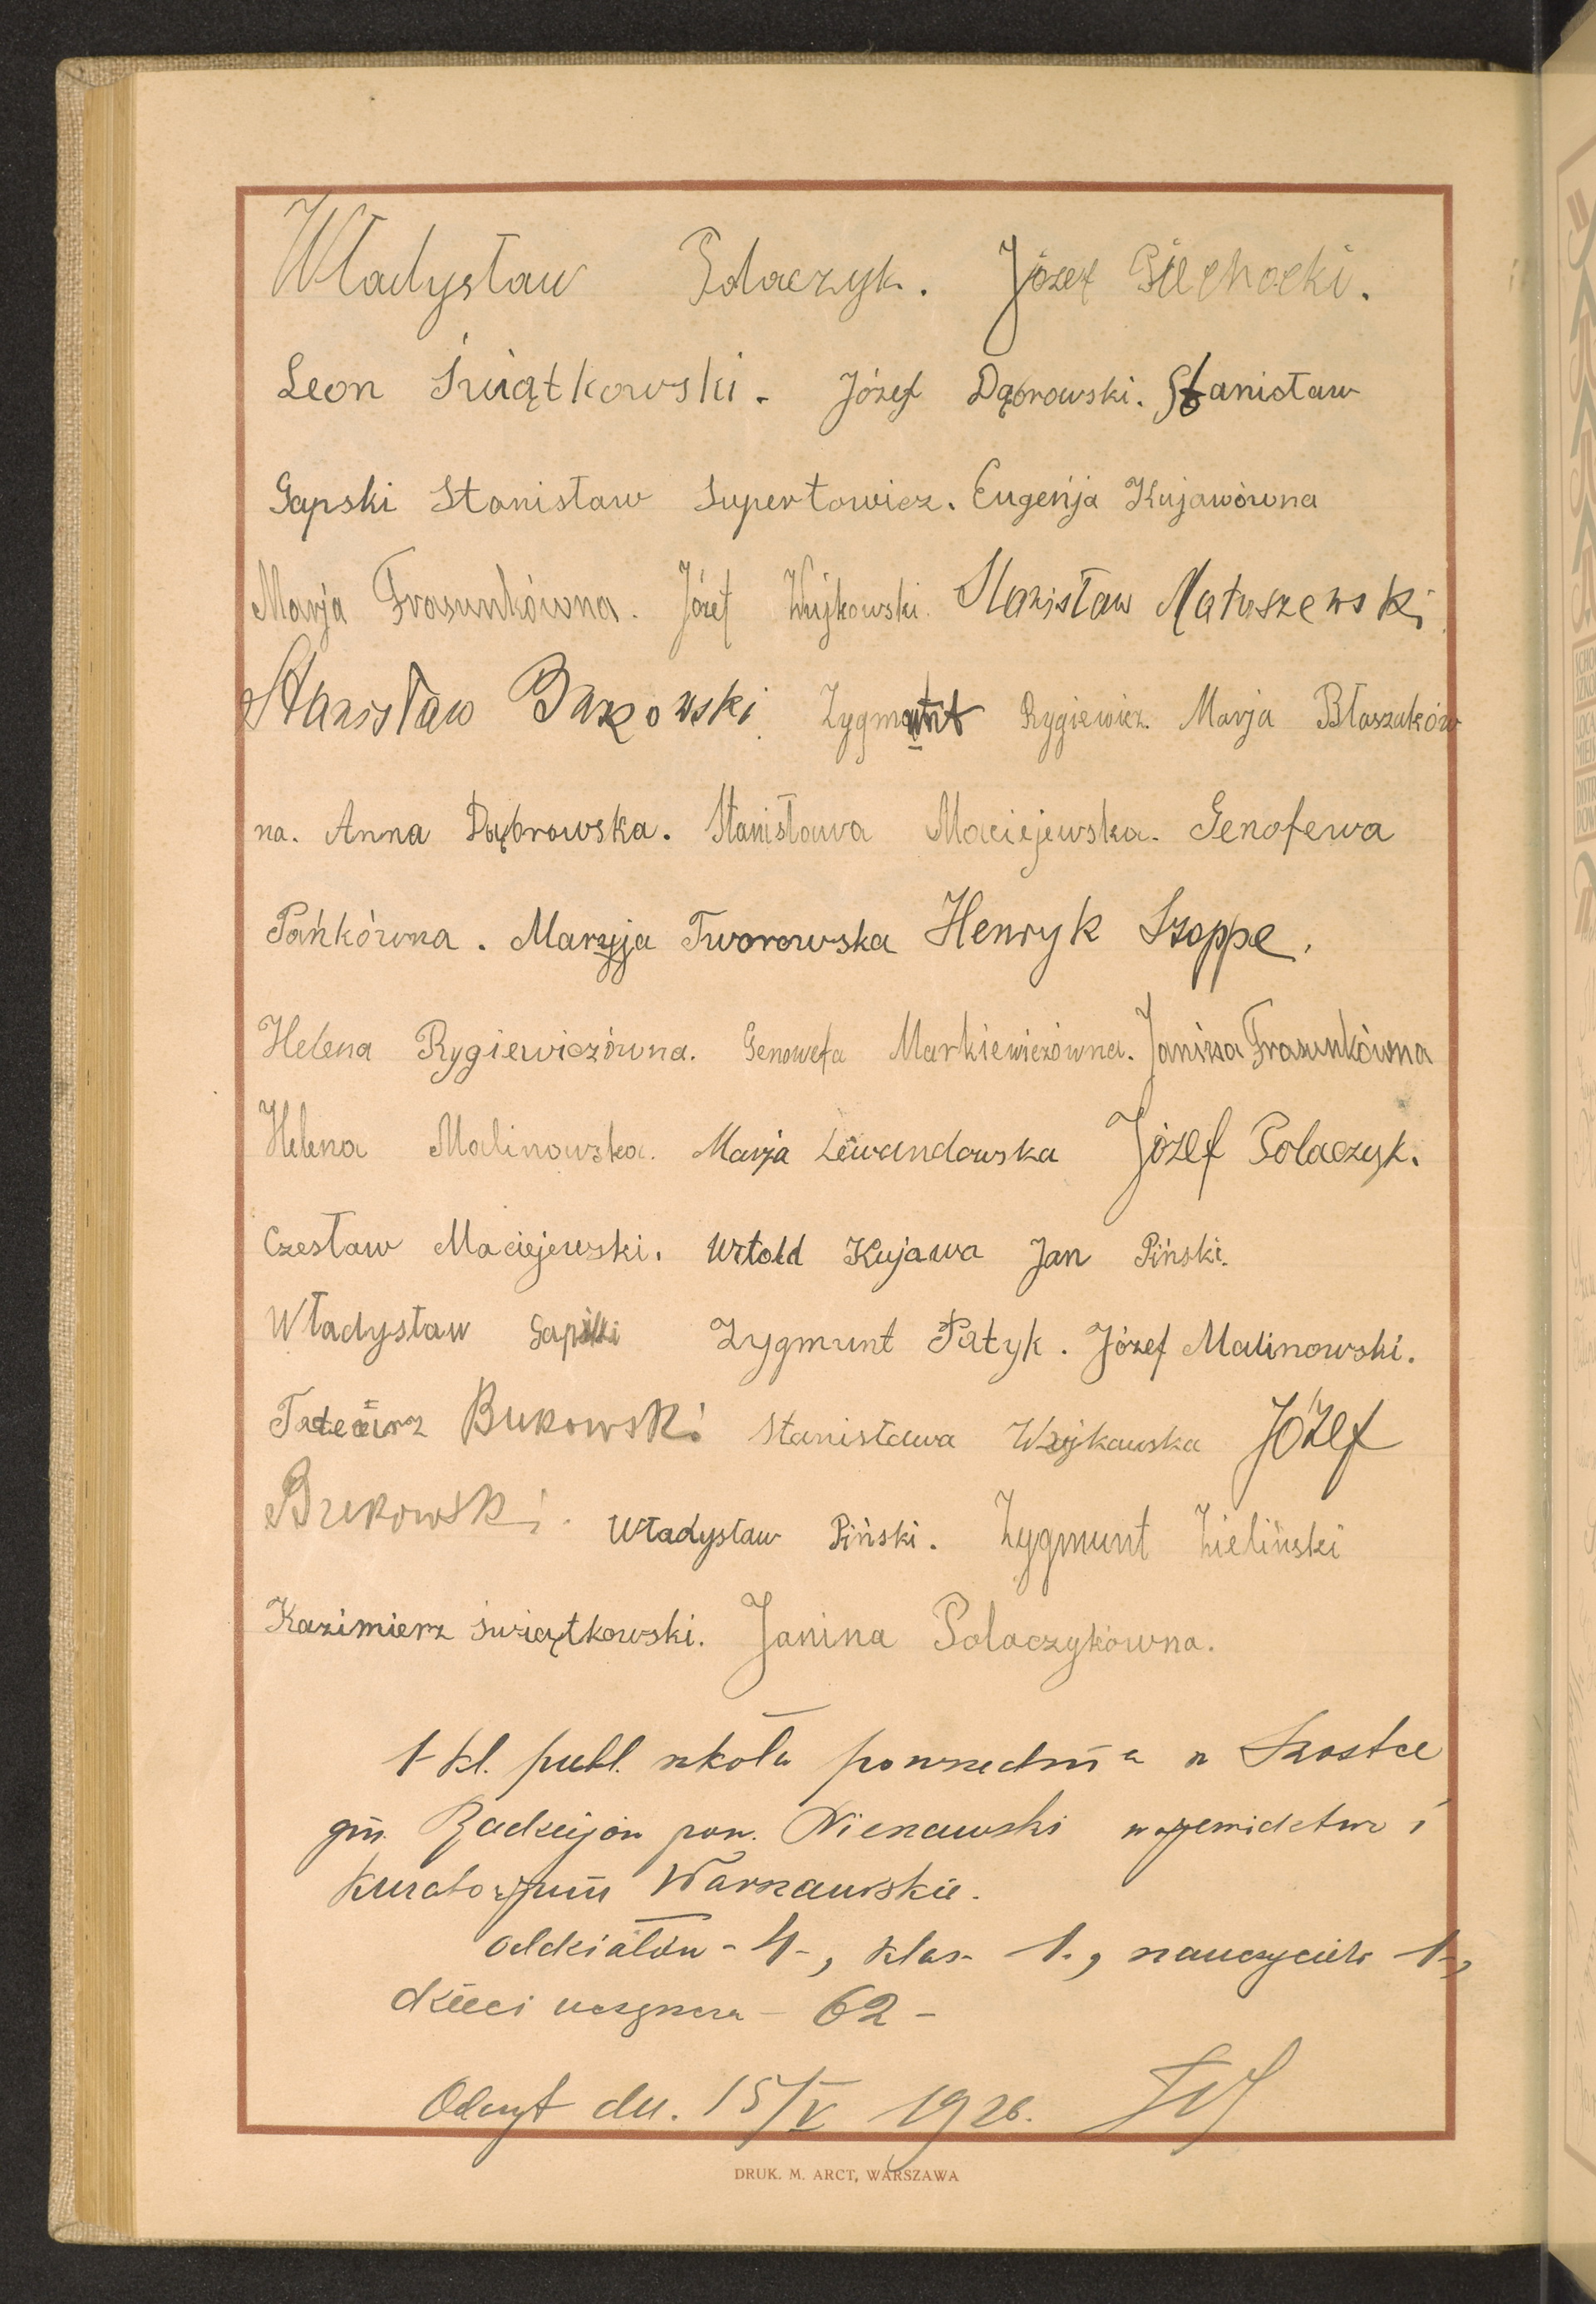 Władysław Polaczyk. Józef Ciechocki.
Leon Świątkowski. Józef Dąbrowski. Stanisław
Gapski Stanisław Supertowicz. Eugenja Kujawówna
Marja Frasunkówna. Józef Wujkowski. Stanisław Matuszewski
Stanisław Bukowski. Zygmunt Rygiewicz. Marja Błaszaków
na. Anna Dąbrowska. Stanisława Maciejewska. Genofewa
Pańkówna. Maryja Tworowska Henryk Szoppe.
Helena Rygiewiczówna. Genowefa Markiewiczówna. Janina Frasunkówna
Helena Malinowska. Marja Lewandowska Józef Polaczyk.
Czesław Maciejewski. Witold Kujawa Jan Piński.
Władysław Gapski Zygmunt Patyk. Józef Malinowski.
Bukowski Stanisława Wujkawska Józef
Bukowski. Władysław Piński. Zygmunt Zieliński
Kazimierz Świątkowski. Janina Polaczykówna.
1 kl. publ. szkoła powszechna w Szostce
gm. Radziejów pow. Nieszawski województwo i
kuratorjum Warszawskie.
oddziałów - 4 -, klas - 1., nauczycieli - 1 -,
dzieci uczęszcza - 62 -
Odczyt dn. 15/V 1926.
DRUK. M. ARCT, WARSZAWA